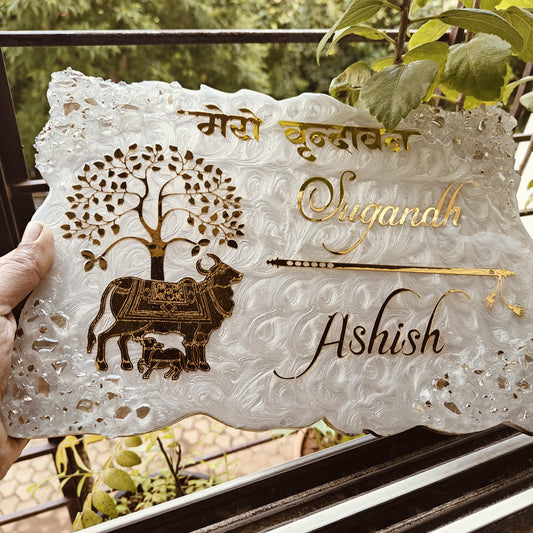 मेरो वृन्दावन
Sugandh
Ashish